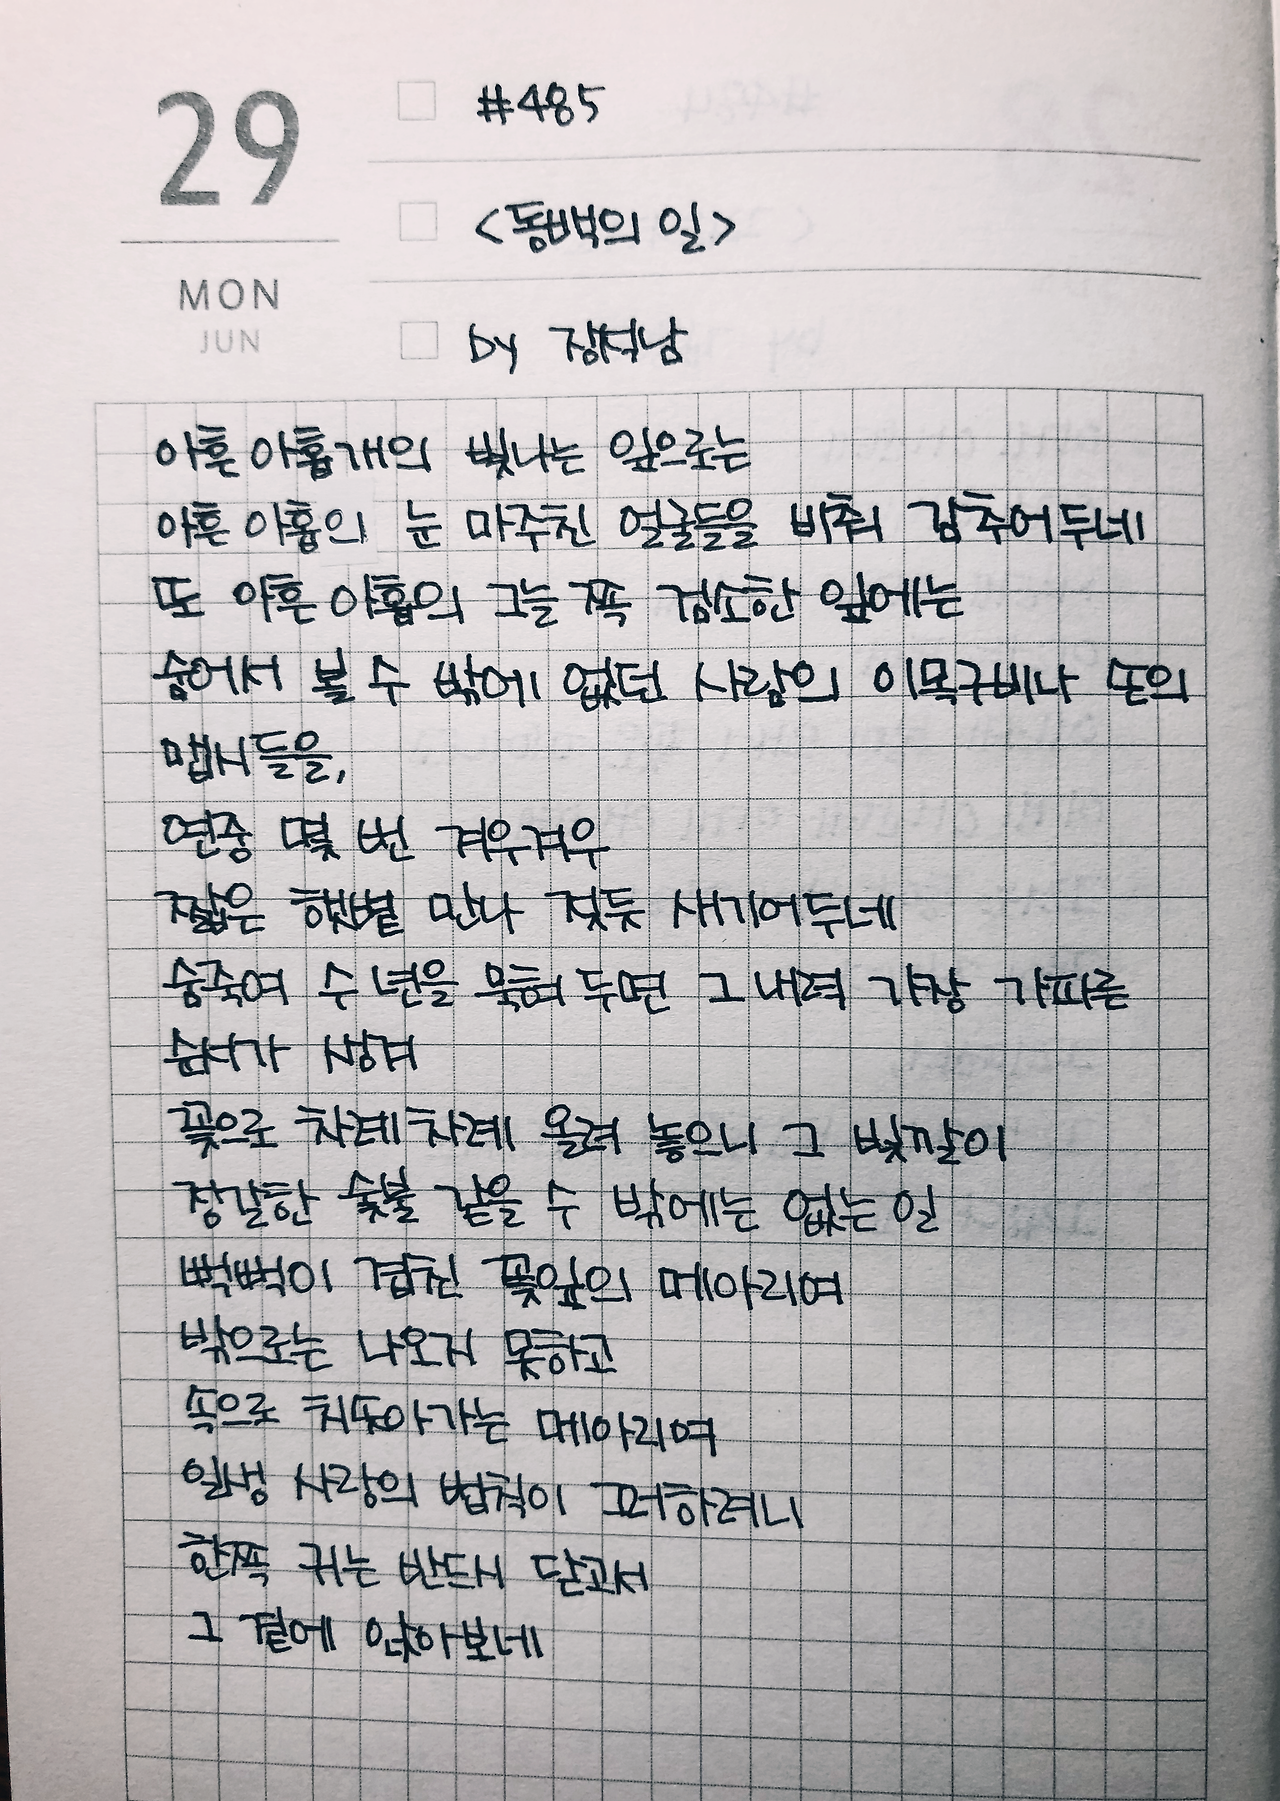 29
MON
JUN
#485
<동백의 일>
by 장석남
아흔아홉개의 빛나는 잎으로는
아흔아홉의 눈 마주친 얼굴들을 비춰 감추어두네
또 아흔아홉의 그늘쪽 검소한 잎에는
숨어서 볼 수 밖에 없던 사람의 이목구비나 또의
맵시들을,
연중 몇 번 겨우겨우
짧은 햇볕 만나 젖듯 새기어두네
숨죽여 수년을 묵혀두면 그 내력 가장 가파른
순서가 생겨
꽃으로 차례차례 올려 놓으니 그 빛깔이
정갈한 숯불 같을 수 밖에는 없는일
뻑뻑이 겹친 꽃잎의 메아리여
밖으로는 나오지 못하고
속으로 치돌아가는 메아리여
일생 사랑의 법칙이 그러하려니
한쪽 귀는 반드시 닫고서
그 곁에 앉아보네